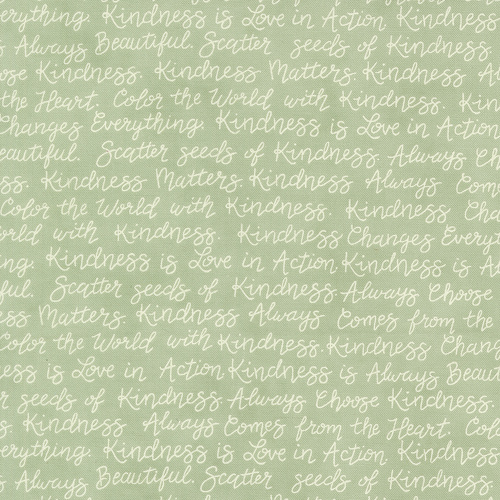 erything. Kindness is Love in Action Kindness
s Always Beautiful. Scatter seeds of Kindness.
ose Kindness. Kindness Matters. Kindness A
the Heart. Color the World with Kindness. Kin
Changes Everything Kindness is Love in Action
eautiful. Scatter seeds of Kindness. Always Ch
ss. Kindness Matters. Kindness Always Com
Color the World with Kindness. Kindness Cha
orld with Kindness. Kindness Changes Everyt
ng. Kindness is Love in Action Kindness is A
ful. Scatter seeds of Kindness. Always Choose
ess Matters Kindness Always Comes from the
Color the World with Kindness. Kindness Chang
ess is Love in Action Kindness is Always Beaut
r seeds of Kindness. Always Choose Kindness.
s. Kindness Always Comes from the Heart. Col
erything. Kindness is Love in Action. Kindness
s Always Beautiful. Scatter seeds of Kindness.